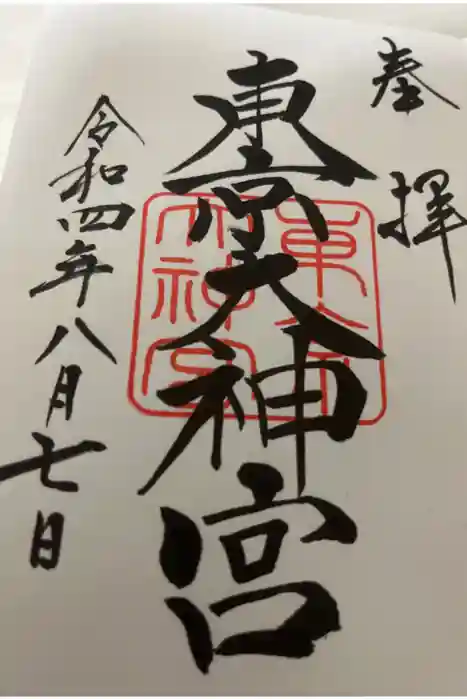 奉拝
東京大神宮
東京大神宮
令和四年八月七日